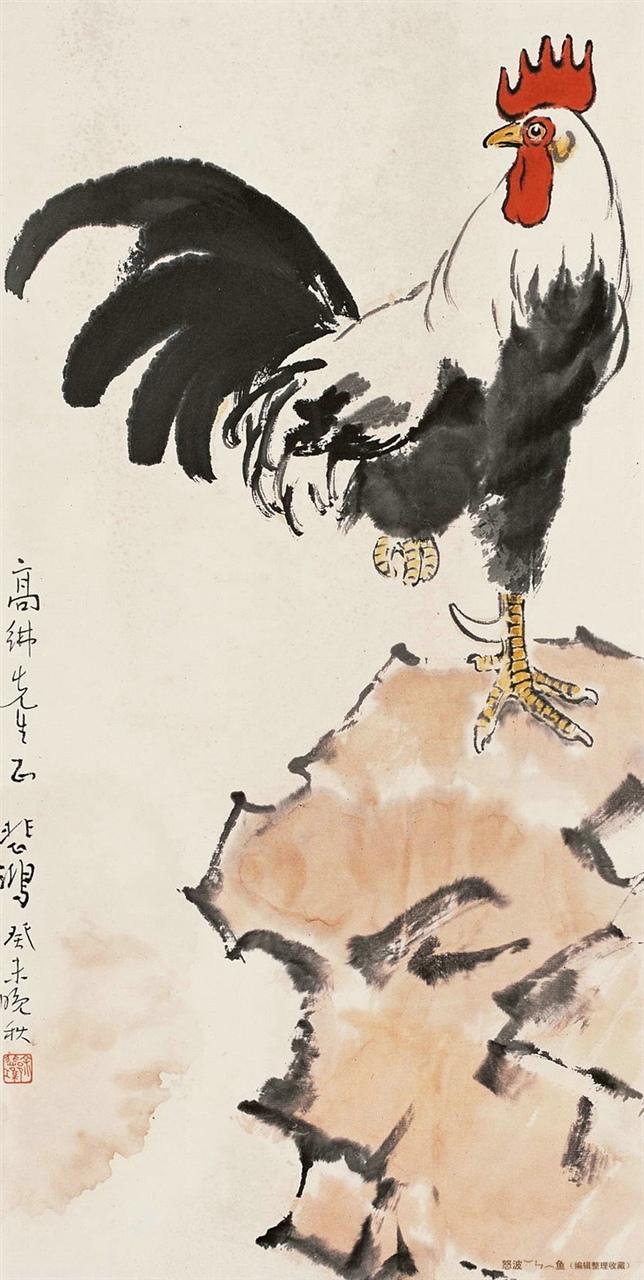 高先生正 悲鴻 癸未晚秋
怒波︶ㄣ︵鱼（编辑整理收藏）